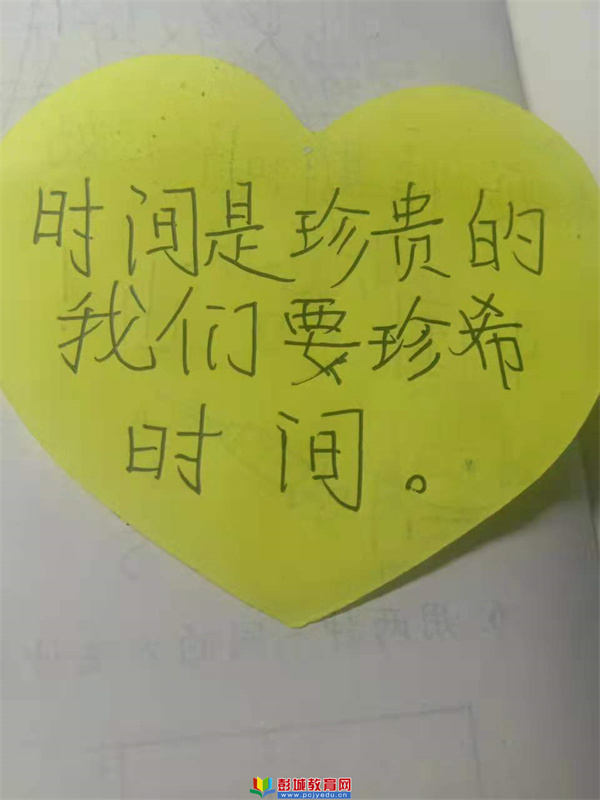 时间是珍贵的
我们要珍希
时间。
彭城教育网
www.pcjyedu.cn